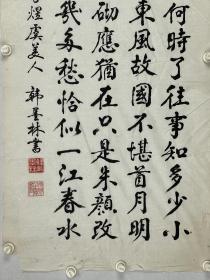 何時了往事知多少小
東風故國不堪首月明
砌應猶在只是朱顏改
幾多愁恰似一江春水
煜虞美人 韓墨林書